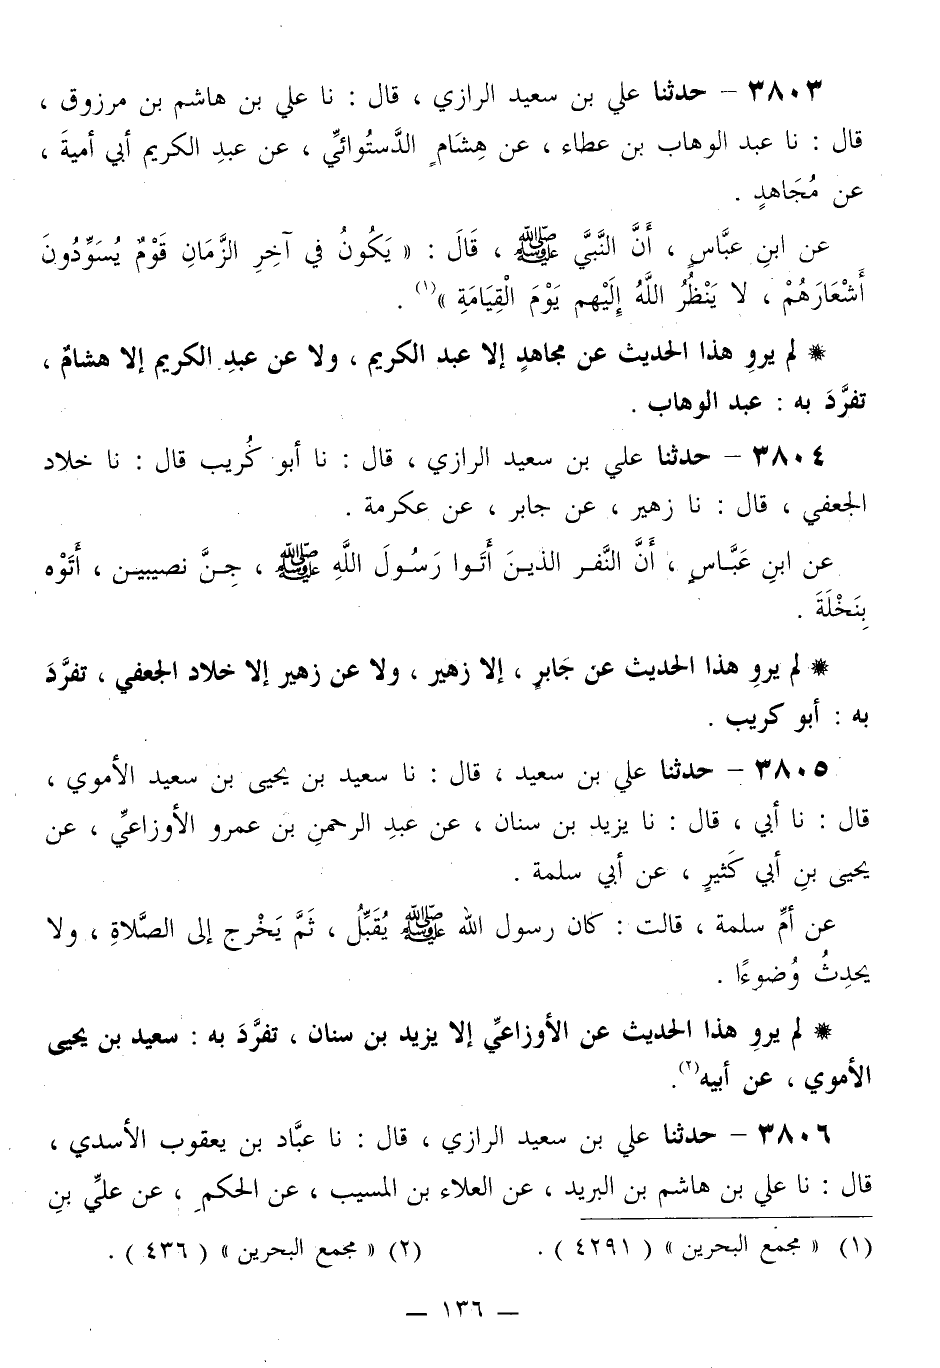 ٣٨٠٣ - حدثنا علي بن سعيد الرازي ، قال : نا علي بن هاشم بن مرزوق ،
قال : نا عبد الوهاب بن عطاء ، عن هِشَامٍ الدَّستُوائيِّ ، عن عبدِ الكريم أبي أميةَ ،
عن مُجَاهدٍ .
عن ابنِ عبَّاسٍ ، أَنَّ النَّبيَّ ﷺ ، قَالَ : « يَكُونُ في آخِرِ الزَّمَانِ قَوْمٌ يُسَوِّدُونَ
أَشْعَارَهُمْ ، لا يَنْظُرُ اللَّهُ إِلَيْهم يَوْمَ الْقِيَامَةِ »(١) .
* لم يروِ هذا الحديث عن مجاهدٍ إلا عبد الكريم ، ولا عن عبدِ الكريم إلا هشامٌ ،
تفرَّدَ به : عبد الوهاب .
٣٨٠٤ - حدثنا علي بن سعيد الرازي ، قال : نا أبو كُريب قال : نا خلاد
الجعفي ، قال : نا زهير ، عن جابر ، عن عكرمة .
عن ابنِ عَبَّاسٍ ، أَنَّ النَّفر الذينَ أَتَوا رَسُولَ اللَّهِ ﷺ ، جِنَّ نصيبين ، أَتَوْه
بِنَخْلَةَ .
* لم يروِ هذا الحديث عن جَابرٍ ، إلا زهير ، ولا عن زهير إلا خلاد الجعفي ، تفرَّدَ
به : أبو كريب .
٣٨٠٥ - حدثنا علي بن سعيد ، قال : نا سعيد بن يحيى بن سعيد الأموي ،
قال : نا أبي ، قال : نا يزيد بن سنان ، عن عبدِ الرحمنِ بن عمرو الأوزاعيِّ ، عن
يحيى بنِ أبي كَثيرٍ ، عن أبي سلمة .
عن أمِّ سلمة ، قالت : كان رسول الله ﷺ يُقَبِّلُ ، ثَمَّ يَخْرج إلى الصَّلاةِ ، ولا
يحدِثُ وُضوءًا .
* لم يروِ هذا الحديث عن الأوزاعيِّ إلا يزيد بن سنان ، تفرَّدَ به : سعيد بن يحيى
الأموي ، عن أبيه(٢).
٣٨٠٦ - حدثنا علي بن سعيد الرازي ، قال : نا عبَّاد بن يعقوب الأسدي ،
قال : نا علي بن هاشم بن البريد ، عن العلاء بن المسيب ، عن الحكمِ ، عن عليِّ بنِ
(١) « مجمع البحرين » ( ٤٢٩١ ) . (٢) « مجمع البحرين » ( ٤٣٦ ) .
— ١٣٦ —